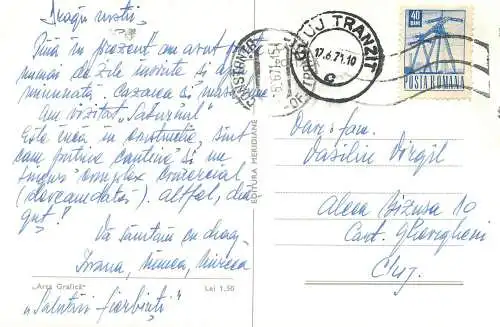 Dragii noștri,
Până în prezent am avut parte
numai de zile însorite și apă
minunată. Cazarea și masa bune
Am vizitat "Saturnul"
Este încă în construcție, sunt
cam puține cantine și un
singur complex comercial
(deocamdată). Altfel, dră-
guț!
Vă sărutăm cu drag,
Ivana, Mircea, Mircea
„Arta Grafică"
Lei 1,50
"Salutări fierbinți"
EDITURA MERIDIANE
CONSTANȚA
15-6.71
CLUJ TRANZIT
17.6.71.10
C
40
BANI
POSTA ROMANA
Dnei, fam.
Vasiliu Virgil
Aleea Bizușa 10
Cart. Gheorgheni
Cluj.